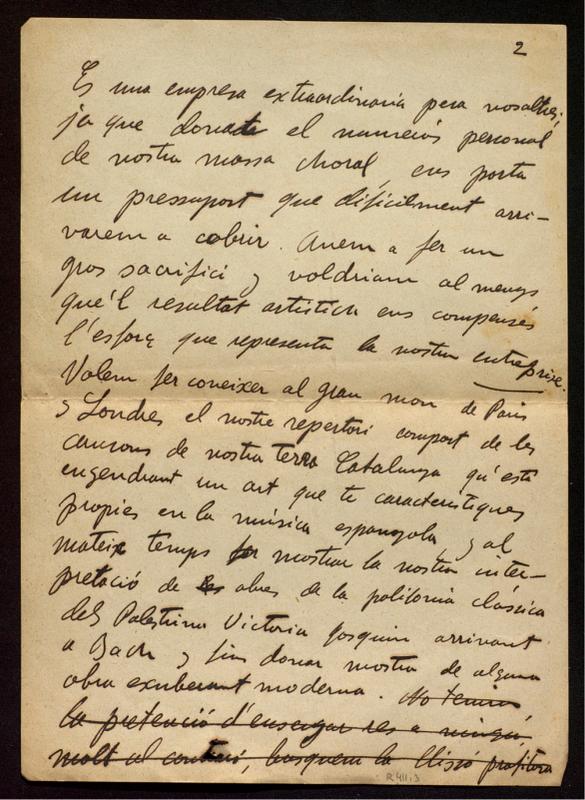 2
Es una empresa extraordinaria pera nosaltres,
ja que donada el numerós personal
de nostra massa choral, ens porta
un pressuport que dificilment arri-
varem a cobrir. Anem a fer un
gros sacrifici y voldriam al menys
que'l resultat artistich ens compensés
l'esforç que representa la nostra entreprise.
Volem fer coneixer al gran mon de Paris
y Londres el nostre repertori compost de les
cansons de nostra terra Catalunya qu'está
engendrant un art que té característiques
propies en la música espanyola, y al
mateix temps mostrar la nostra inter-
pretació de les obres de la polifonia clássica
dels Palestrina Victoria Josquin arrivant
a Bach y fins donar mostra de alguna
obra exuberant moderna. No tenim
la pretenció d'ensenyar res a ningú
molt al contrari, busquem la llissó profitosa
R411,3